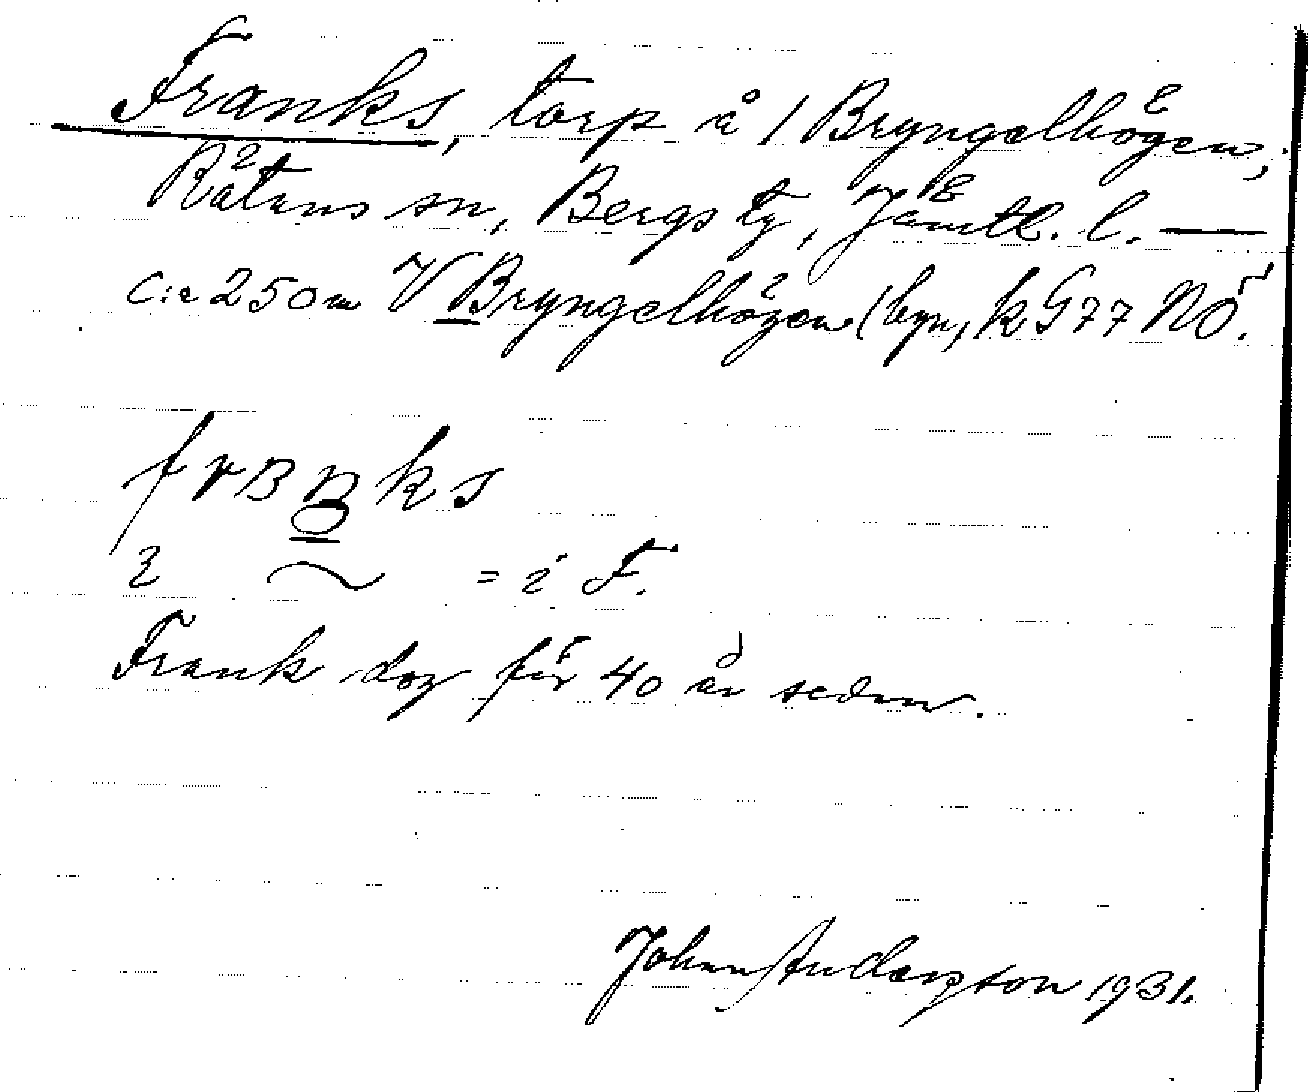 Franks, torp å 1 Bryngelhögen,
Rätans sn, Bergs tg, Jämtl. l. —
c:a 250 m V Bryngelhögen (byn, k G77 NÖ.
= i F.
Frank dog för 40 år sedan.
Johan Anderson 1931.